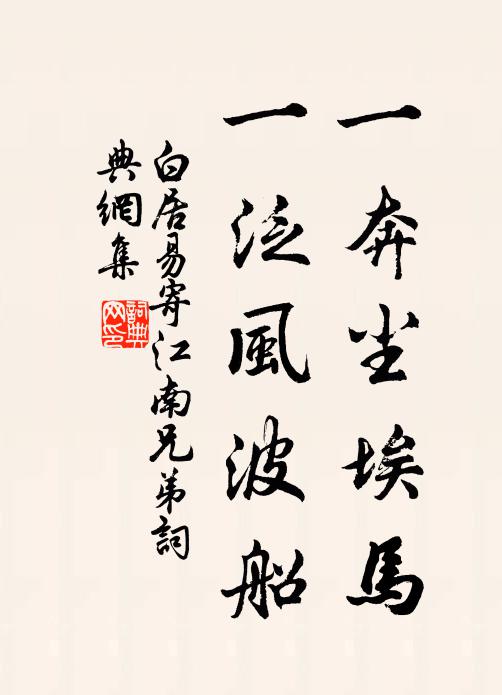 一奔尘埃馬
一泛風波船
白居易寄江南兄弟詞
典網集
詞典
网印